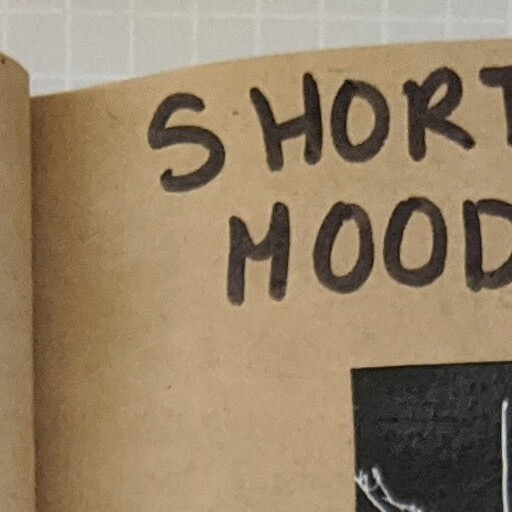 SHORT
MOOD